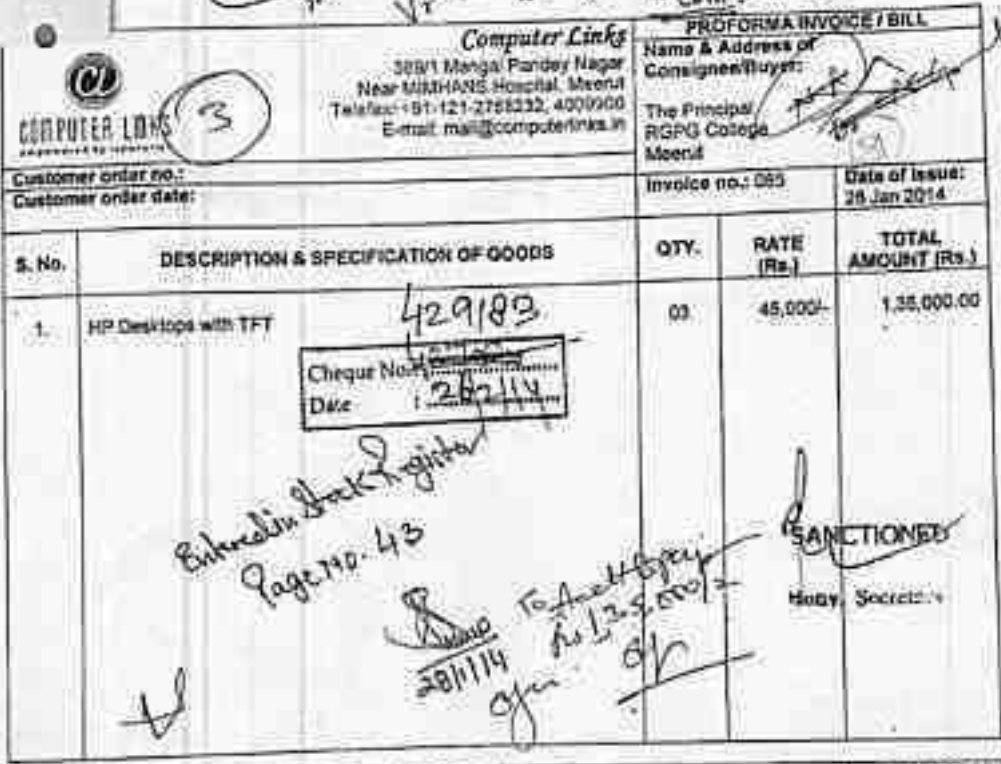 Computer Links
389/1 Mangal Pandey Nagar
Near MIMHANS Hospital, Meerut
Telefax: +91-121-2768232, 4009900
E-mail: mail@computerlinks.in
COMPUTER LINKS
3
PROFORMA INVOICE / BILL
Name & Address of
Consignee/Buyer:
The Principal
RGPG College
Meerut
Customer order no.:
Customer order date:
Invoice no.: 085
Date of Issue:
28 Jan 2014
S. No.
DESCRIPTION & SPECIFICATION OF GOODS
QTY.
RATE
(Rs.)
TOTAL
AMOUNT (Rs.)
1.
HP Desktops with TFT
03
45,000/-
1,35,000.00
429183
Cheque No.
Date : 2/2/14
Entered in Stock Register
Page no. 43
28/1/14
To
Rs 1,35,000/=
SANCTIONED
Hony. Secretary